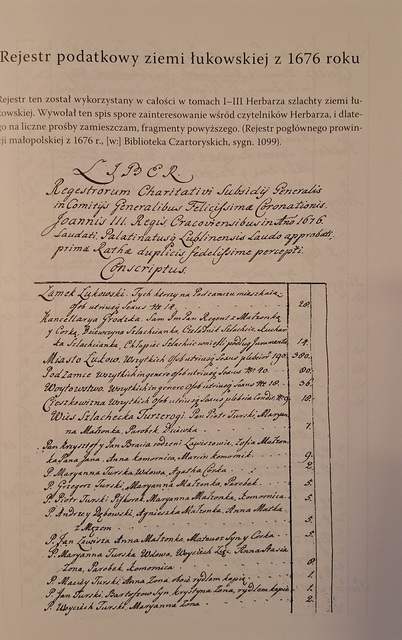 Rejestr podatkowy ziemi łukowskiej z 1676 roku
Rejestr ten został wykorzystany w całości w tomach I–III Herbarza szlachty ziemi łu-
kowskiej. Wywołał ten spis spore zainteresowanie wśród czytelników Herbarza, i dlate-
go na liczne prośby zamieszczam, fragmenty powyższego. (Rejestr pogłównego prowin-
cji małopolskiej z 1676 r., [w:] Biblioteka Czartoryskich, sygn. 1099).
LIBER
Regestrorum Charitativi Subsidij Generalis
in Comitijs Generalibus Felicissimæ Coronationis
Joannis III. Regis, Cracoviensibus in Anō 1676
Laudati, Palatinatus Lublinensis Laudo approbati,
prima Ratha duplicis fedelissime percepti.
Conscriptus.
Zamek Łukowski. Tych ktorzy na Podzamzu mieszkaią
Osob utriusq Sexus No 14. 28.
Kancellarya Grodzka. Sam Jm Pan Regent z Małżonką
y Corką,
Szlachcianka, Chłopiec Szlachcic 14.
Miasto Łukow. Wszytkich Osob utriusq Sexus plebeior 190. 380.
Podzamcze Wszytkich in genere osob utriusq Sexus No 40. 80.
Woytowstwo. Wszytkich in genere Osob utriusq Sexus No 18. 36.
Wszytkich Osob utriusq Sexus plebeia Condic: No 9. 18.
Wieś Szlachecka Turzerogi. Pan Piotr Turski, Maryan
na Małżonka, Parobek, Dziewka. 7.
Pan Krzysztof y Jan Bracia rodzeni Zawiszowie, Zofia Małżon
ka Pana Jana, Anna komornica, Marcin komornik. 9.
P. Maryanna Turska Wdowa, Agatha Corka 2.
P. Grzegorz Turski, Maryanna Małżonka, Parobek. 5.
P. Piotr Turski Maryanna Małżonka, Komornica. 5.
P. Andrzey Dębowski, Agnieszka Małżonka, Anna Matka
z Mężem 5.
P. Jan Zawisza Anna Małżonka Mateusz Syn y Corka 5.
P. Maryanna Turska Wdowa, Woyciech Zięc. Anna
Żona, Parobek, Komornica. 8.
P. Maciey Turski, Anna Żona, oboie rydlem kopią 1.
P. Jan Turski, Bartosz Syn, Krystyna Żona, rydlem kopią 1.
P. Woyciech Turski, Maryanna Żona. 2.